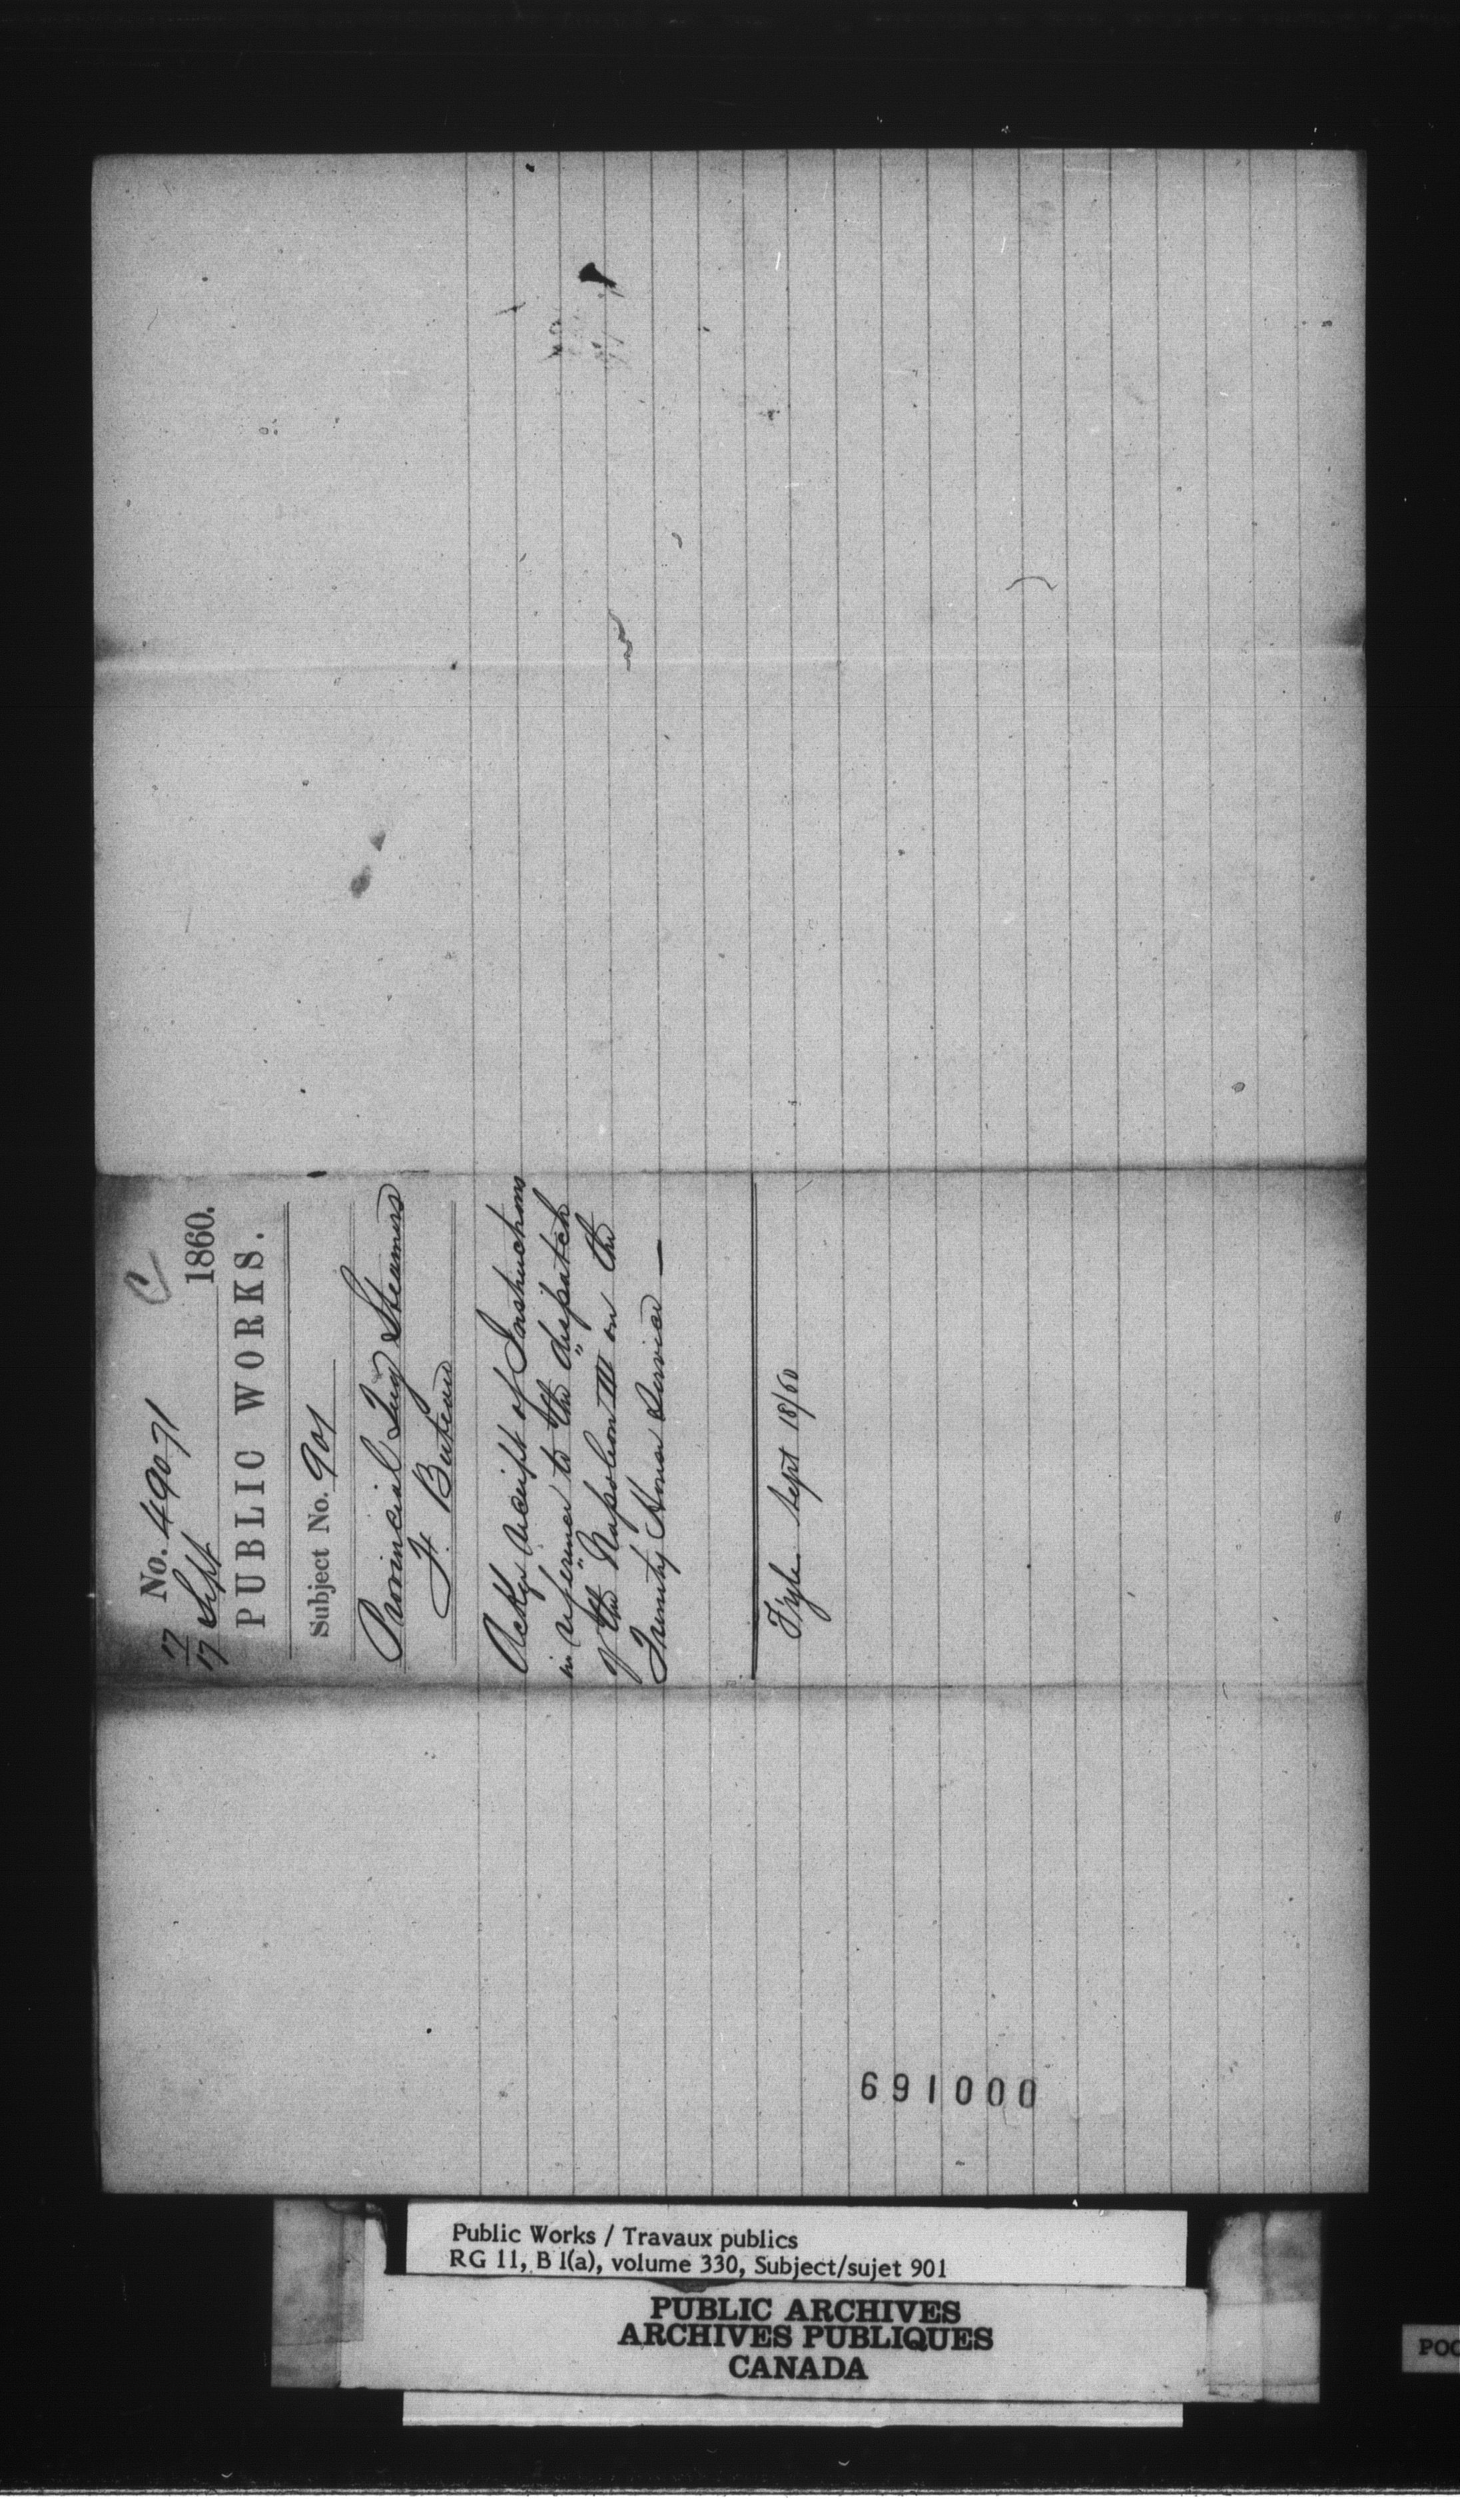 C
No. 49071
17
17 Sept 1860.
PUBLIC WORKS.
Subject No. 901
Provincial Tug Steamers
F. Buteau
Ackgs receipt of Instructions
in reference to the dispatch
of the "Napoleon III" on the
Trinity House Service —
Fyle Sept 18/60
691000
Public Works / Travaux publics
RG 11, B 1(a), volume 330, Subject/sujet 901
PUBLIC ARCHIVES
ARCHIVES PUBLIQUES
CANADA